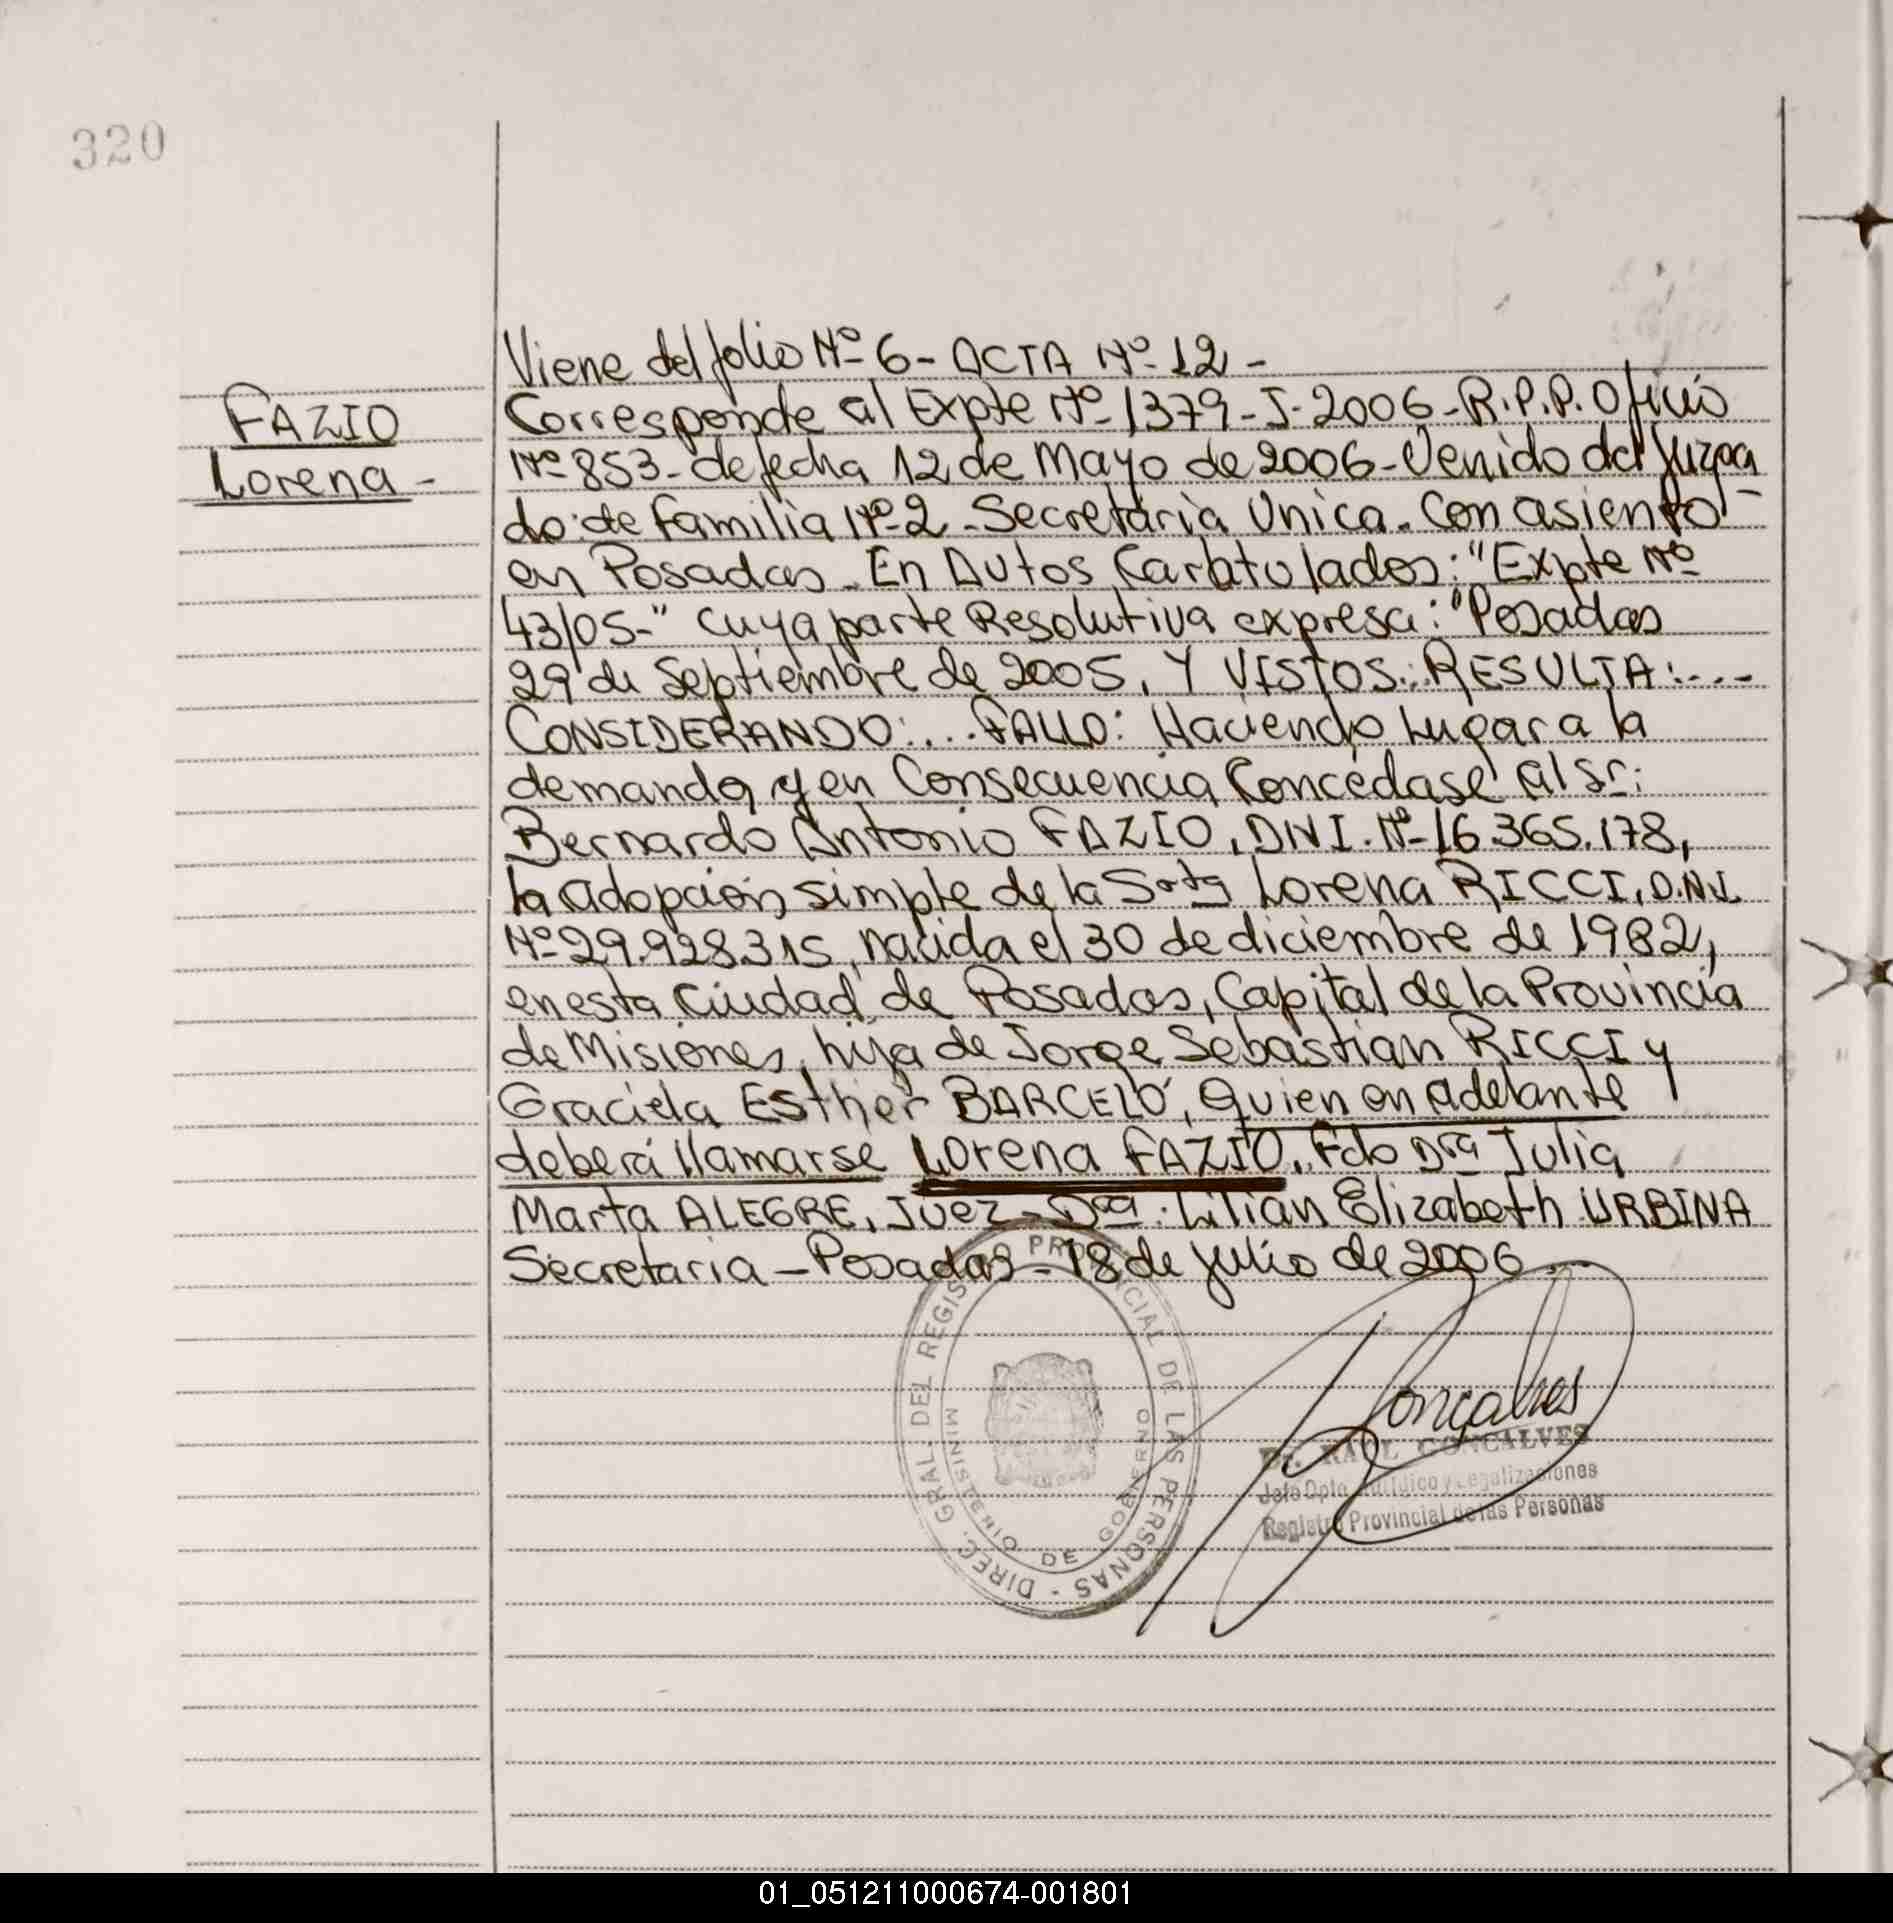 320
FAZIO
Lorena -
Viene del folio Nº 6 - ACTA Nº 12 -
Corresponde al Expte Nº 1379 - J - 2006 - R.P.P. Oficio
Nº 853 - de fecha 12 de Mayo de 2006 - Venido del Juzga
do de Familia Nº 2 - Secretaria Unica. Con asiento
en Posadas - En Autos Caratulados: "Expte Nº
43/05 -" cuya parte Resolutiva expresa: "Posadas
29 de Septiembre de 2005, Y VISTOS: RESULTA: ....
CONSIDERANDO: ... FALLO: Haciendo Lugar a la
demanda y en Consecuencia Concédase al Sr:
Bernardo Antonio FAZIO, DNI. Nº 16.365.178,
la adopción simple de la Srta Lorena RICCI, D.N.I.
Nº 29.928.315, nacida el 30 de diciembre de 1982,
en esta Ciudad de Posadas, Capital de la Provincia
de Misiones, hija de Jorge Sebastián RICCI y
Graciela Esther BARCELÓ, quien en adelante
deberá llamarse Lorena FAZIO. Fdo Dra Julia
Marta ALEGRE, Juez - Dra. Lilian Elizabeth URBINA
Secretaria - Posadas - 18 de julio de 2006 ...
DIREC. GRAL DEL REGIS PROVINCIAL DE LAS PERSONAS -
MINISTERIO DE GOBIERNO
Gonçalves
Dr. RAUL GONCALVES
Jefe Dpto. Jurídico y Legalizaciones
Registro Provincial de las Personas
01_051211000674-001801